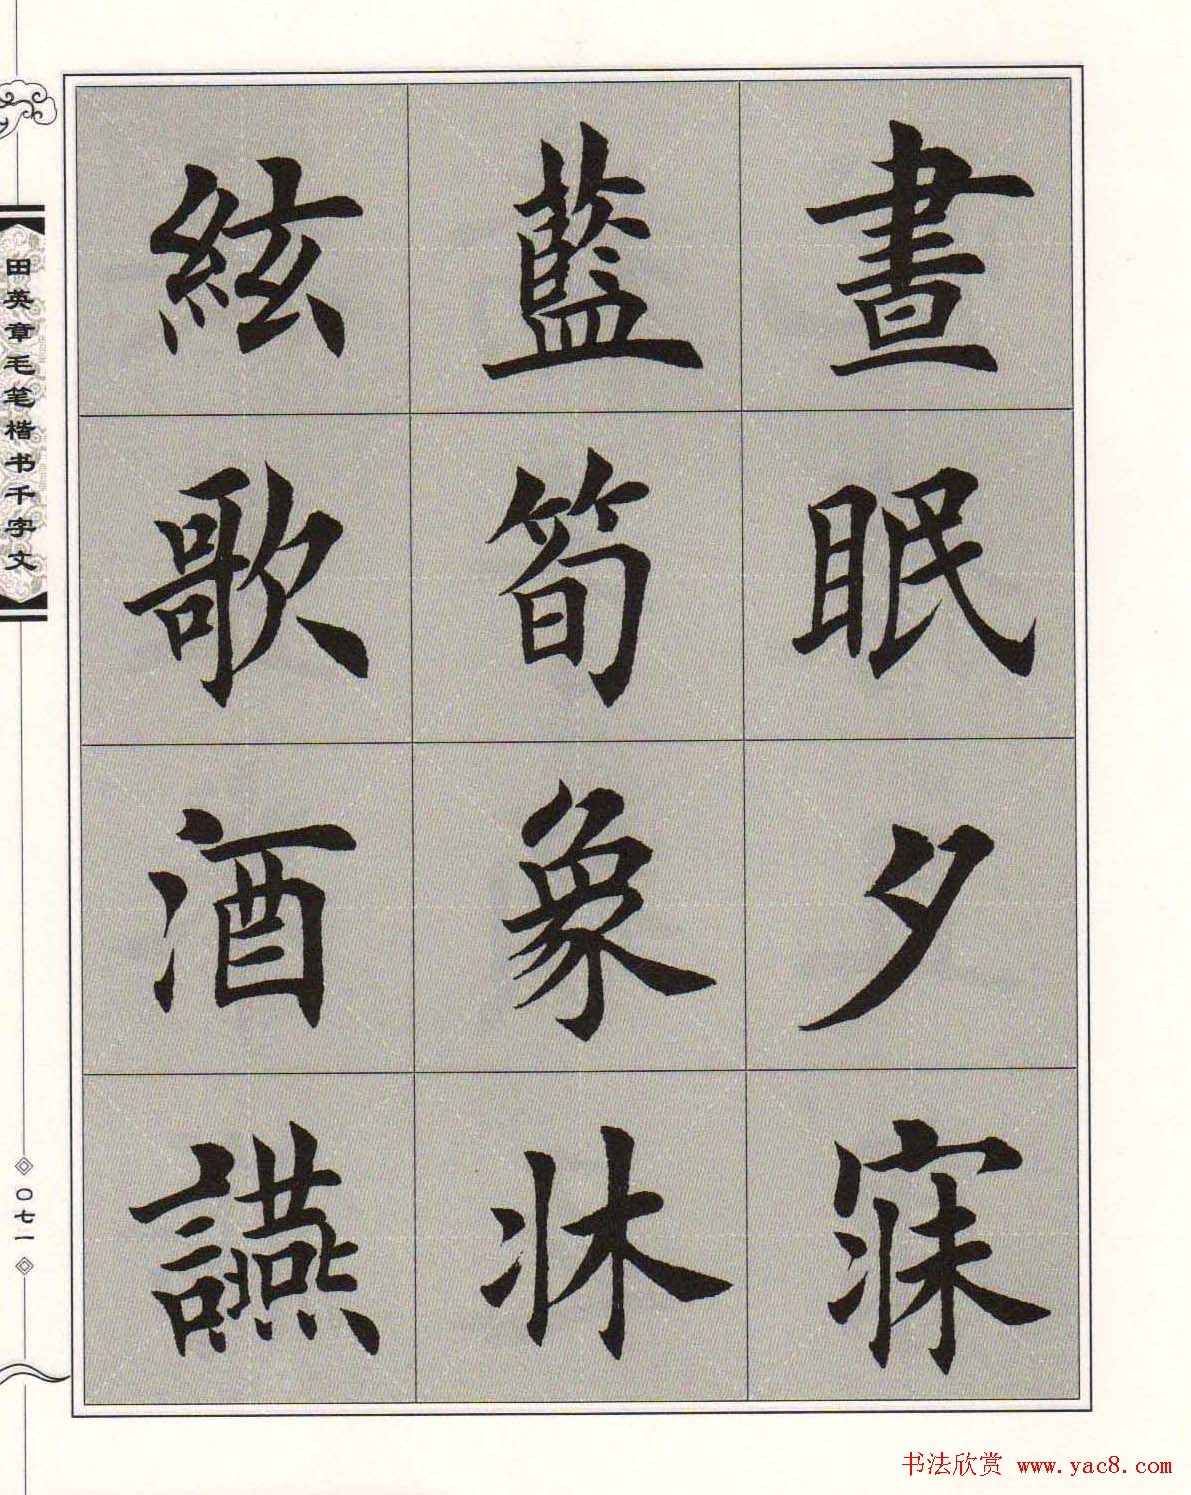 晝眠夕寐
藍筍象牀
絃歌酒讌
田英章毛笔楷书千字文
〇七一
书法欣赏 www.yac8.com